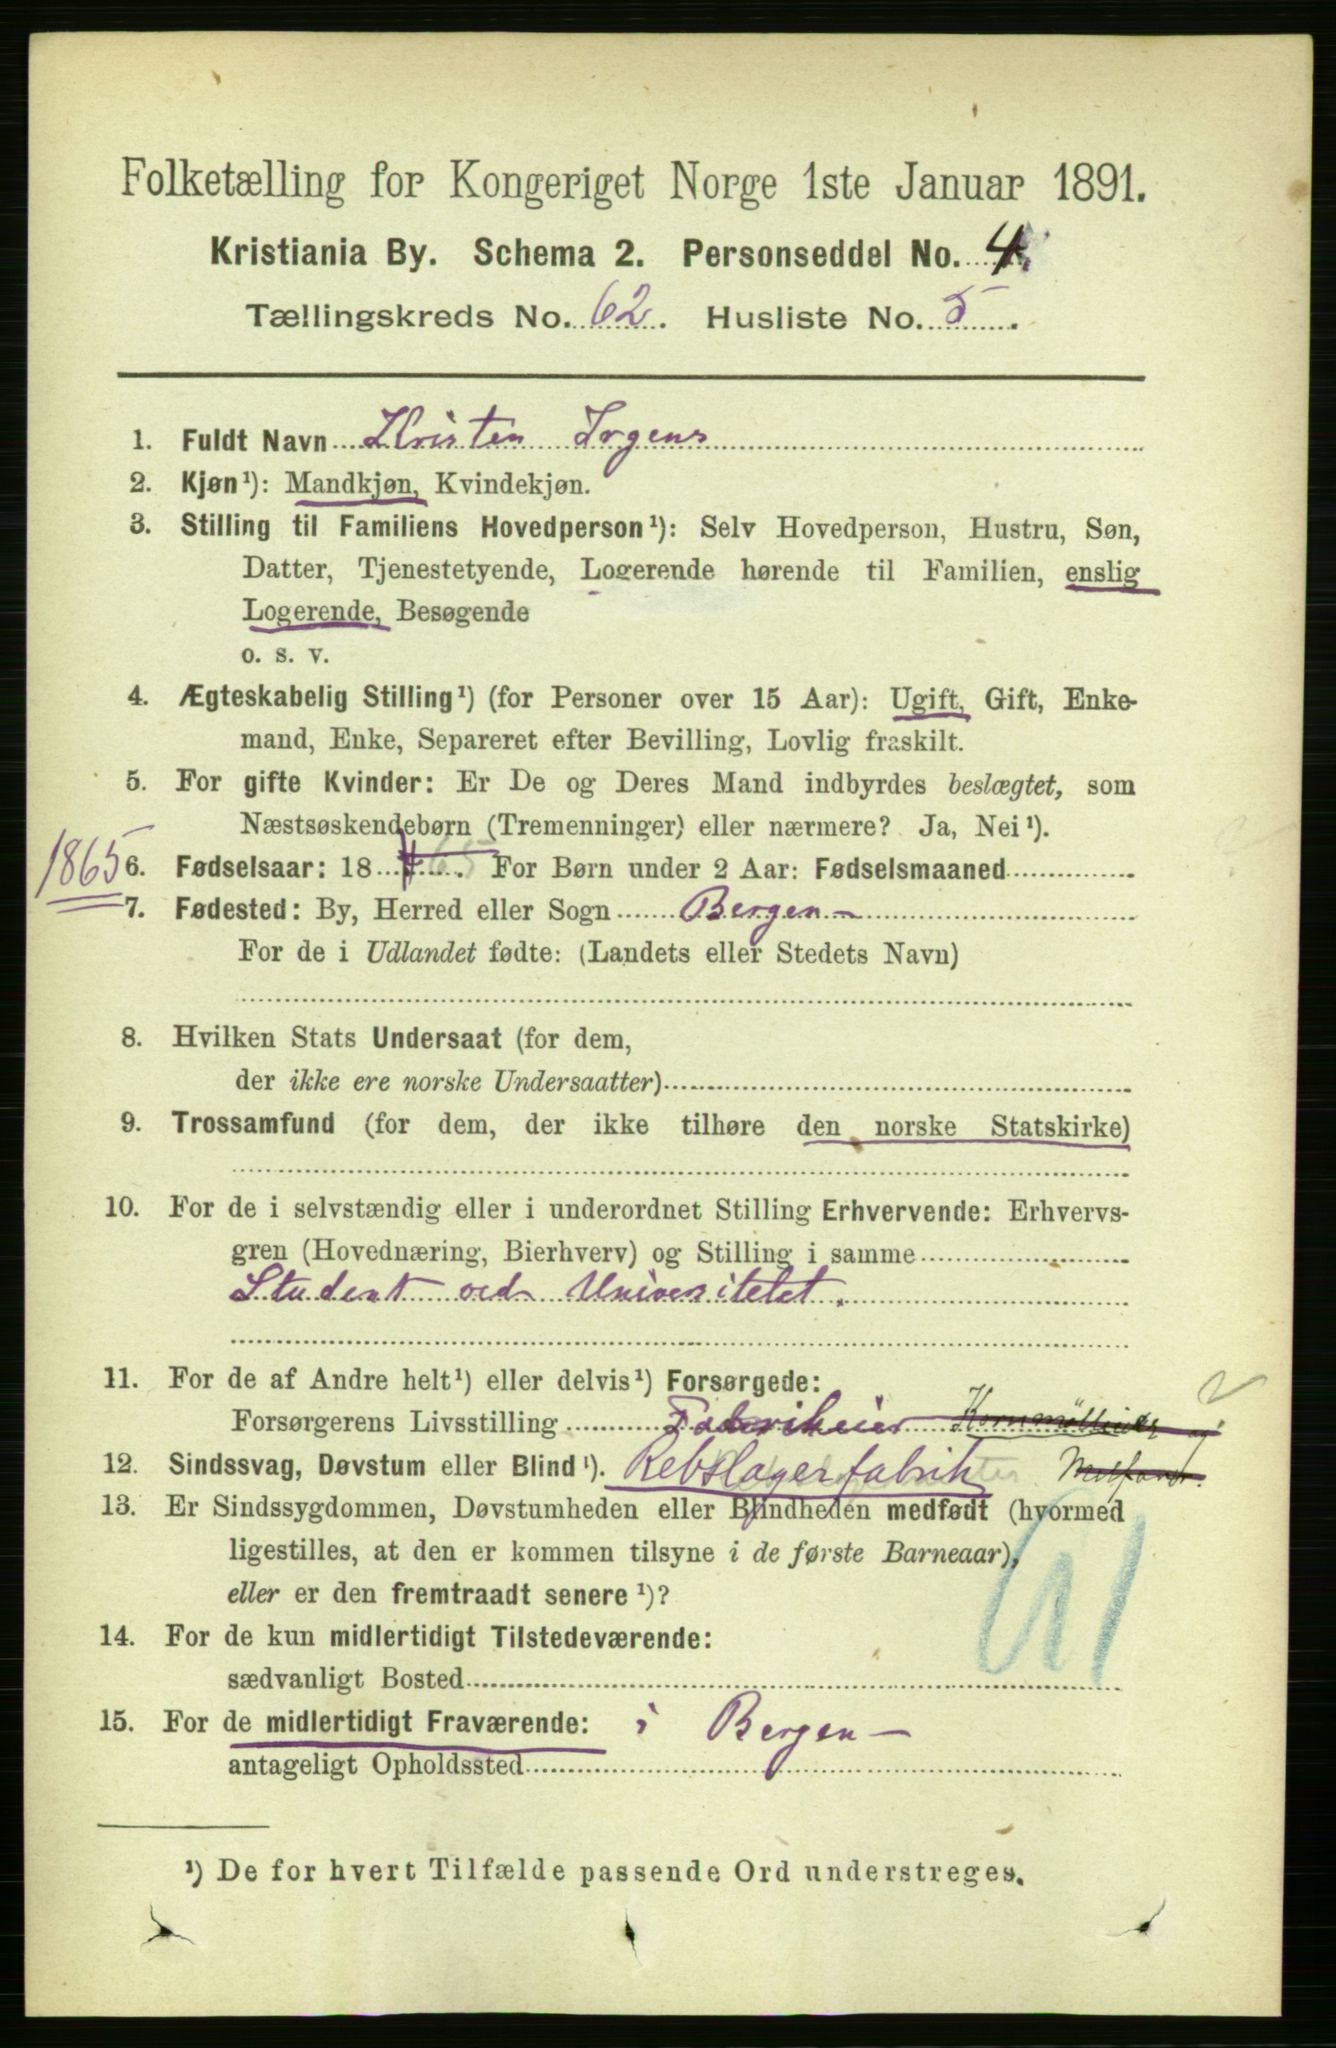 Folketælling for Kongeriget Norge 1ste Januar 1891.
Kristiania By. Schema 2. Personseddel No. 4.
Tællingskreds No. 62. Husliste No. 5.
1. Fuldt Navn Kristen Irgens
2. Kjøn¹): Mandkjøn, Kvindekjøn.
3. Stilling til Familiens Hovedperson¹): Selv Hovedperson, Hustru, Søn,
Datter, Tjenestetyende, Logerende hørende til Familien, enslig
Logerende, Besøgende
o. s. v.
4. Ægteskabelig Stilling¹) (for Personer over 15 Aar): Ugift, Gift, Enke-
mand, Enke, Separeret efter Bevilling, Lovlig fraskilt.
5. For gifte Kvinder: Er De og Deres Mand indbyrdes beslægtet, som
Næstsøskendebørn (Tremenninger) eller nærmere? Ja, Nei¹).
1865 6. Fødselsaar: 18 65. For Børn under 2 Aar: Fødselsmaaned
7. Fødested: By, Herred eller Sogn Bergen
For de i Udlandet fødte: (Landets eller Stedets Navn)
8. Hvilken Stats Undersaat (for dem,
der ikke ere norske Undersaatter)
9. Trossamfund (for dem, der ikke tilhøre den norske Statskirke)
10. For de i selvstændig eller i underordnet Stilling Erhvervende: Erhvervs-
gren (Hovednæring, Bierhverv) og Stilling i samme
Student ved Universitetet.
11. For de af Andre helt¹) eller delvis¹) Forsørgede:
Forsørgerens Livsstilling Fabrikeier og
12. Sindssvag, Døvstum eller Blind¹). Rebslagerfabrik
13. Er Sindssygdommen, Døvstumheden eller Blindheden medfødt (hvormed
ligestilles, at den er kommen tilsyne i de første Barneaar),
eller er den fremtraadt senere¹)?
14. For de kun midlertidigt Tilstedeværende:
sædvanligt Bosted
15. For de midlertidigt Fraværende: i Bergen
antageligt Opholdssted
¹) De for hvert Tilfælde passende Ord understreges.